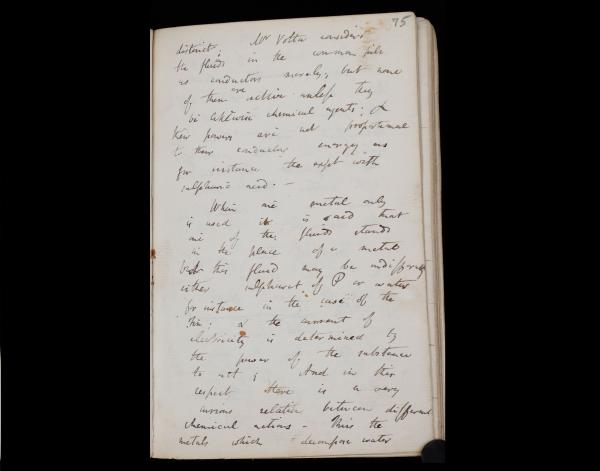 75
distinct; Mr Volta considers
the fluids in the common pile
as conductors merely; but none
of them are active unless they
be likewise chemical agents; &
their powers are not proportional
to their conducting energy as
for instance the expt with
sulphuric acid. —
When one metal only
is used it is said that
one of the fluids stands
in the place of a metal
but this fluid may be indifferently
either sulphuret of P or water
for instance in the case of the
; & the current of
electricity is determined by
the power of the substance
to act; And in this
respect there is a very
curious relation between different
chemical actions — Thus the
metals which decompose water